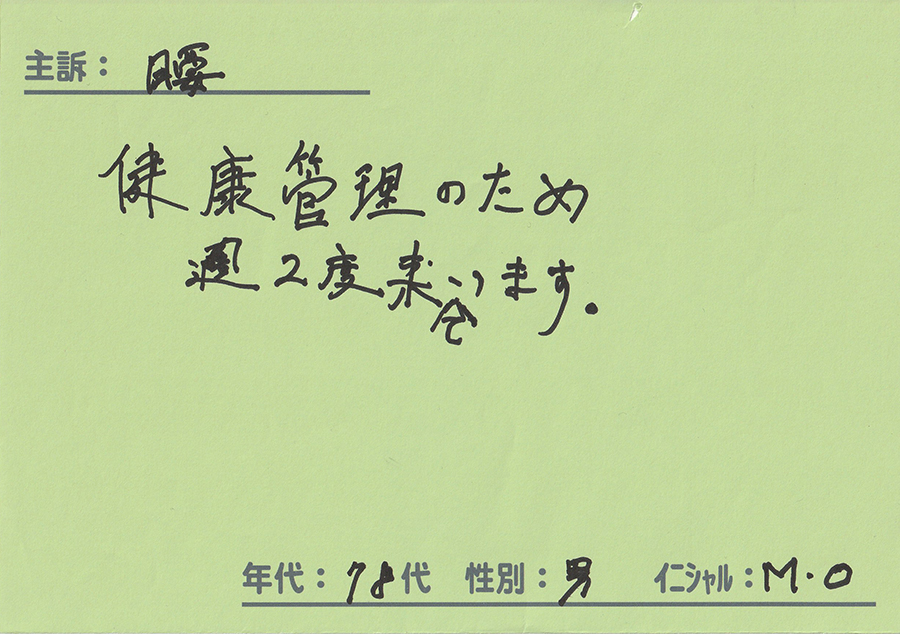 主訴： 腰
健康管理のため
週2度来ています。
年代：78代 性別：男 イニシャル：M・O